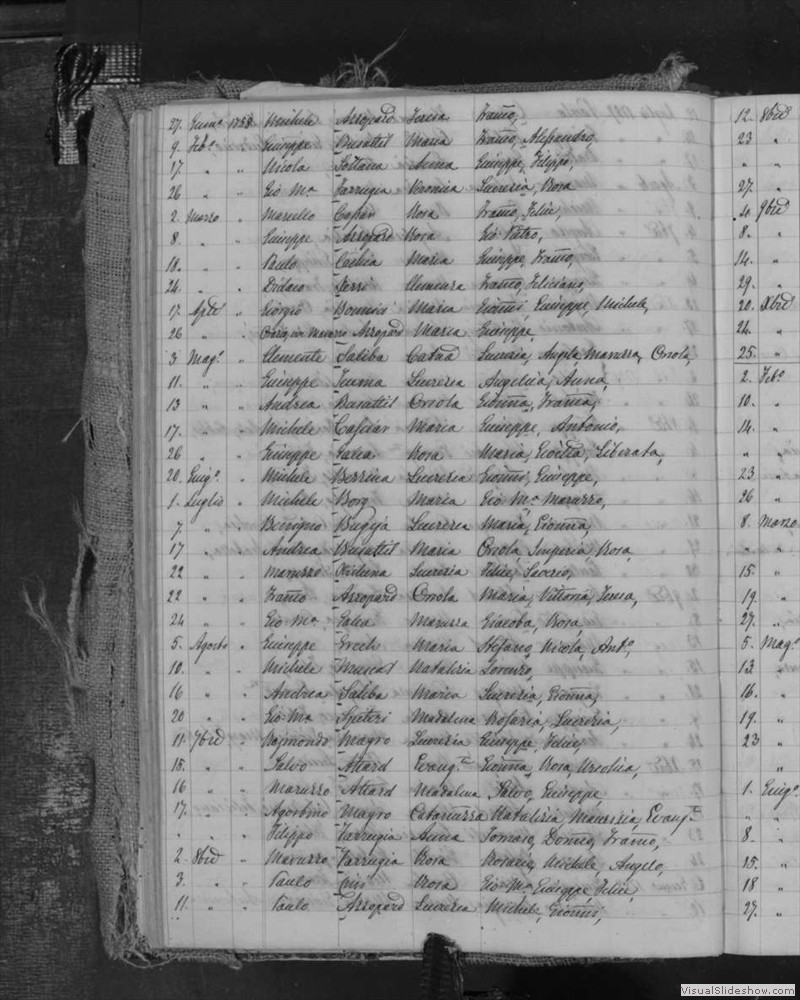 27. Genn.º 1758 Michele Azzopard Teresa Franco, 12. 8bre
9. Feb.º " Giuseppe Busuttil Maria Franco, Alessandro, 23 "
17. " " Nicola Soltana Anna Giuseppe, Filippo, " "
26 " " Gio Mª Farrugia Veronica Lucrezia, Rosa 27. "
2. Marzo " Marcello Rosa Franco, Felice, 4. 9bre
8. " " Giuseppe Azzopard Rosa Gio: Pietro, 8. "
18. " " Paulo Maria Giuseppe, Franco, 14. "
24. " " Didaco Franco, Feliciano, 29. "
17. Aple " Giorgio Bonnici Maria Gionni, Giuseppe, Michele, 20. Xbre
26 " " Azzopard Maria Giuseppe, 24. "
3 Mag.º " Clemente Saliba Catna Lucrezia, Angela Maruzza, Orsola, 25. "
11. " " Giuseppe Lucrezia Angelica, Anna, 2. Feb.º
13 " " Andrea Busuttil Orsola Gionna, Franca, 10. "
17. " " Michele Maria Giuseppe, Antonio, 14. "
26 " " Giuseppe Galea Rosa Maria, Liberata, " "
20. Giug.º " Michele Lucrezia Gionni, Giuseppe, 23 "
1. Luglio " Michele Borg Maria Gio Mª Maruzzo, 26 "
7. " " Benigno Bugeja Lucrezia Maria, Gionna, 8. Marzo
17 " " Andrea Busuttil Maria Orsola Imperia, Rosa, " "
22 " " Maruzzo Lucrezia Felice, Saverio, 15. "
22 " " Franco Azzopard Orsola Maria, Vittoria, Teresa, 19. "
24 " " Gio Mª Galea Maruzza Giacoba, Rosa, 27. "
5. Agosto " Giuseppe Grech Maria Stefano, Nicola, Ant.º, 5. Mag.º
10. " " Michele Muscat Natalizia Lorenzo, 13 "
16 " " Andrea Saliba Maria Lucrezia, Gionna, 16. "
20 " " Gio: Mª Spiteri Madalena Rosaria, Lucrezia, 19. "
11. 7bre " Rajmondo Magro Lucrezia Giuseppe, Felice, 23 "
15. " " Salvo Attard Evang.ª Gionna, Rosa, Ursolica, "
16 " " Maruzzo Attard Madalena Salvo, Giuseppe, 1. Giug.º
17. " " Agostino Magro Catarinuzza Natalizia, Evang.ª " "
" " " Filippo Farrugia Anna Tomaso, Franco, 8. "
2. 8bre " Maruzzo Farrugia Rosa Rosario, Michele, Angelo, 15. "
3. " " Paulo Rosa Gio: Mª Giuseppe, Felice, 18 "
11. " " Paulo Azzopard Lucrezia Michele, Gionni, 27. "
VisualSlideshow.com